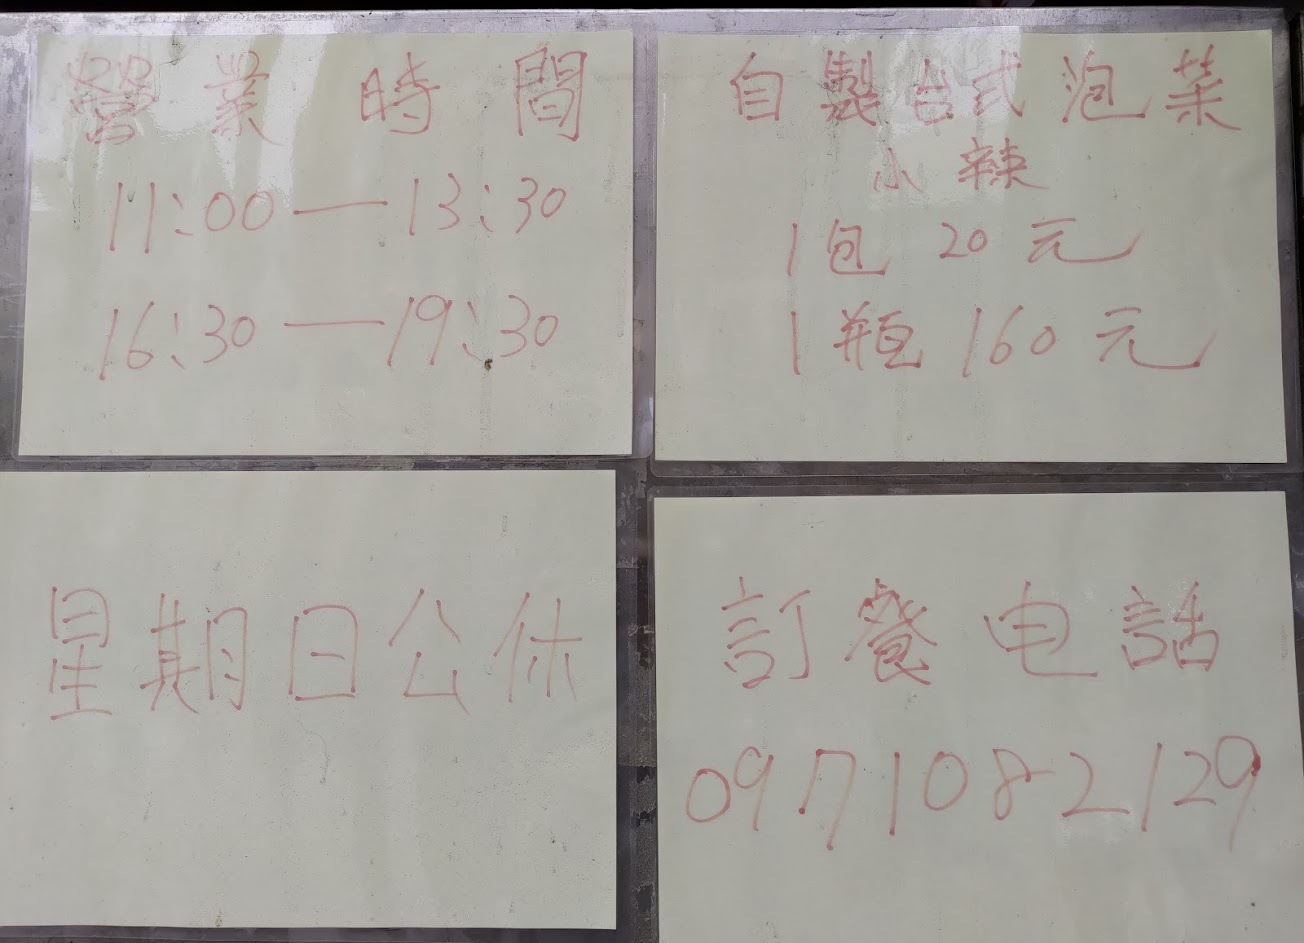 營業時間
11:00—13:30
16:30—19:30
自製台式泡菜
小辣
1包 20元
1瓶 160元
星期日公休
訂餐电話
0971082129